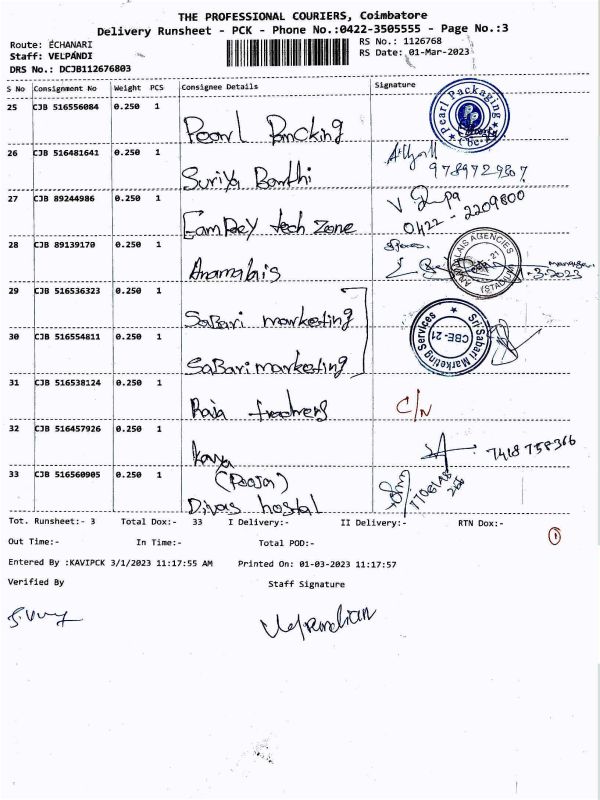 THE PROFESSIONAL COURIERS, Coimbatore
Delivery Runsheet - PCK - Phone No.:0422-3505555 - Page No.:3
Route: ECHANARI
RS No.: 1126768
Staff: VELPANDI
RS Date: 01-Mar-2023
DRS No.: DCJB112676803
S No Consignment No Weight PCS Consignee Details Signature
25 CJB 516556084 0.250 1
Pearl Packing
Pearl Packaging
26 CJB 516481641 0.250 1
Suriya Barthi
9789729307
27 CJB 89244986 0.250 1
tech zone
0422 - 2209800
28 CJB 89139170 0.250 1
Anamalais
ANAMALAIS AGENCIES
(STADIUM)
Manager
-3-2023
29 CJB 516536323 0.250 1
SaBari marketing
30 CJB 516554811 0.250 1
SaBari marketing
Sri Sabari Marketing Services
CBE-21
31 CJB 516538124 0.250 1
Raja
C/N
32 CJB 516457926 0.250 1
Kavya
7418758366
33 CJB 516560905 0.250 1
(Pooja)
Divas hostal
Tot. Runsheet:- 3 Total Dox:- 33 I Delivery:- II Delivery:- RTN Dox:-
1
Out Time:- In Time:- Total POD:-
Entered By :KAVIPCK 3/1/2023 11:17:55 AM Printed On: 01-03-2023 11:17:57
Verified By Staff Signature
Velpandian